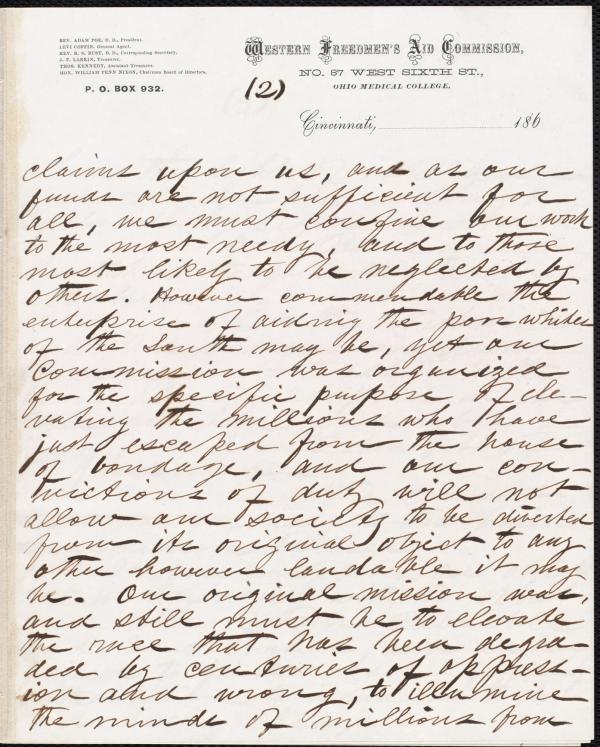 REV. ADAM POE, D. D., President.
LEVI COFFIN, General Agent.
REV. R. S. RUST, D. D., Corresponding Secretary.
J. F. LARKIN, Treasurer.
THOS. KENNEDY, Assistant Treasurer.
HON. WILLIAM PENN NIXON, Chairman Board of Directors.
P. O. BOX 932.
WESTERN FREEDMEN'S AID COMMISSION,
NO. 87 WEST SIXTH ST.,
OHIO MEDICAL COLLEGE.
(2)
Cincinnati, 186
claims upon us, and as our
funds are not sufficient for
all, we must confine our work
to the most needy, and to those
most likely to be neglected by
others. However commendable the
enterprise of aiding the poor whites
of the South may be, yet our
Commission was organized
for the specific purpose of ele-
vating the millions who have
just escaped from the house
of bondage, and our con-
victions of duty will not
allow our society to be diverted
from its original object to any
other however laudable it may
be. Our original mission was,
and still must be to elevate
the race that has been degra-
ded by centuries of oppress-
ion and wrong, to illumine
the minds of millions from